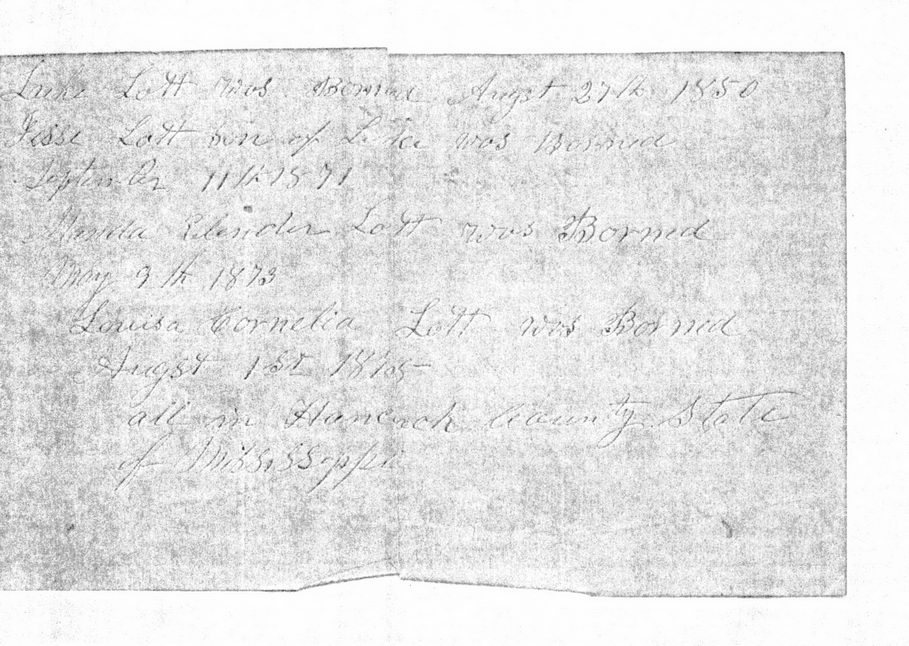 Luke Lott was Borned Augst 27th 1850
Jesse Lott son of Luke was Borned
September 11th 1871
Lott was Borned
May 9th 1873
Louisa Cornelia Lott was Borned
Augst 1st
all in Hancock County State
of Mississippi